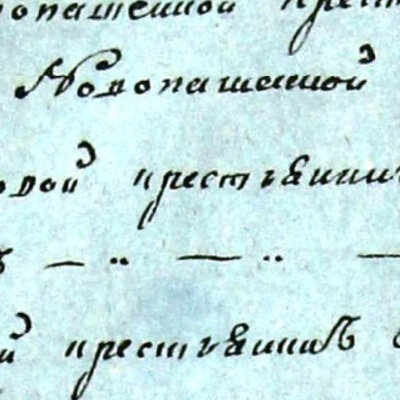 вопашенной крест
Новопашенной
овой крестьянинъ
ъ — „ — „ —
й крестьянинъ